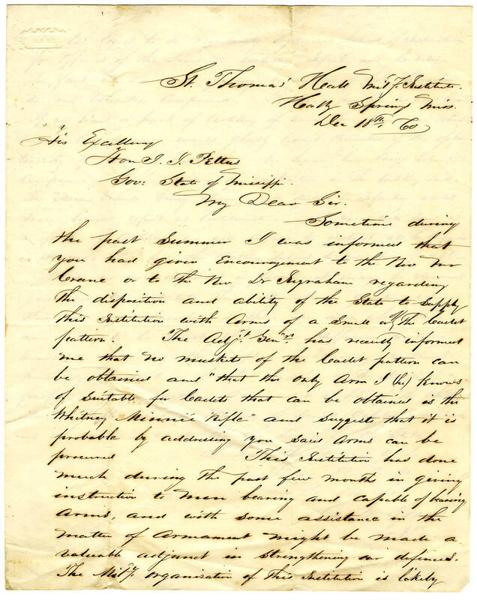 St. Thomas' Hall Mil'y Institute
Holly Springs Miss.
Dec 11th, 60
His Excellency
Hon J. J. Pettus
Gov: State of Mississippi.
My Dear Sir.
Sometime during
the past Summer I was informed that
you had given Encouragement to the Rev Mr
Crane or to the Rev Dr Ingraham regarding
the disposition and ability of the State to Supply
this Institution with Arms of a Small or the Cadet
pattern. The Adj't Gen'l has recently informed
me that no musket of the Cadet pattern can
be obtained and "that the only Arm I (he) Knows
of Suitable for Cadets that can be obtained is the
Whitney Minnie Rifle" and suggests that it is
probable by addressing you said Arms can be
procured This Institution has done
much during the past few months in giving
instruction to men bearing and capable of bearing
Arms, and with some assistance in the
matter of Armament might be made a
valuable adjunct in strengthening our defences.
The Mil'y organization of this Institution is likely